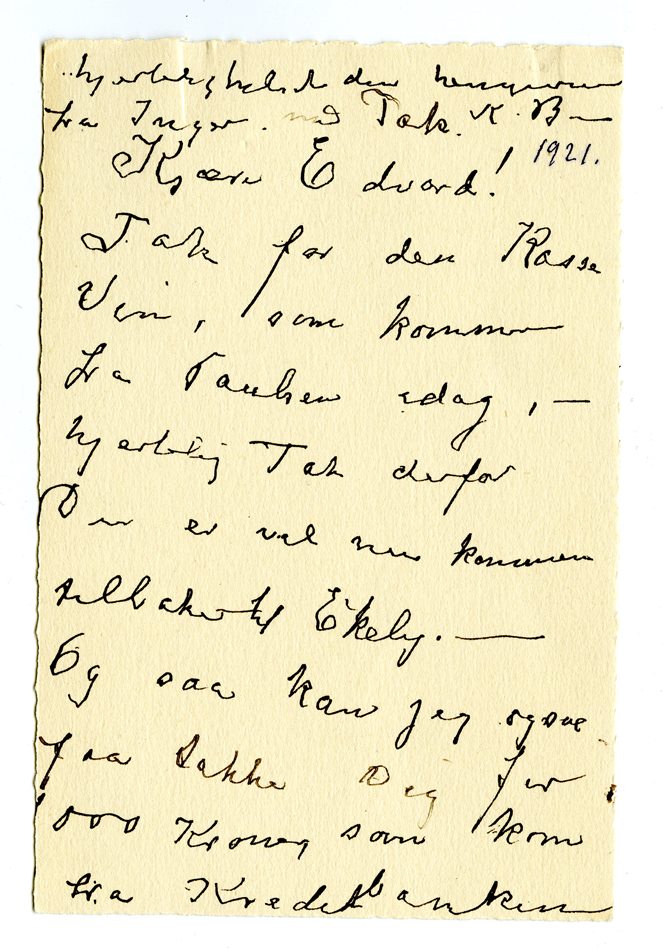 hjerteligst den hengivne
fra Inger. med Tak. K. B—
1921.
Kjære Edvard!
Tak for den Kasse
Vin, som kommer
fra Paulsen idag, —
hjertelig Tak derfor
Du er vel nu kommen
tilbake til Ekely. —
Og saa kan jeg ogsaa
faa takke Dig for
1000 Kroner som kom
fra Kreditbanken